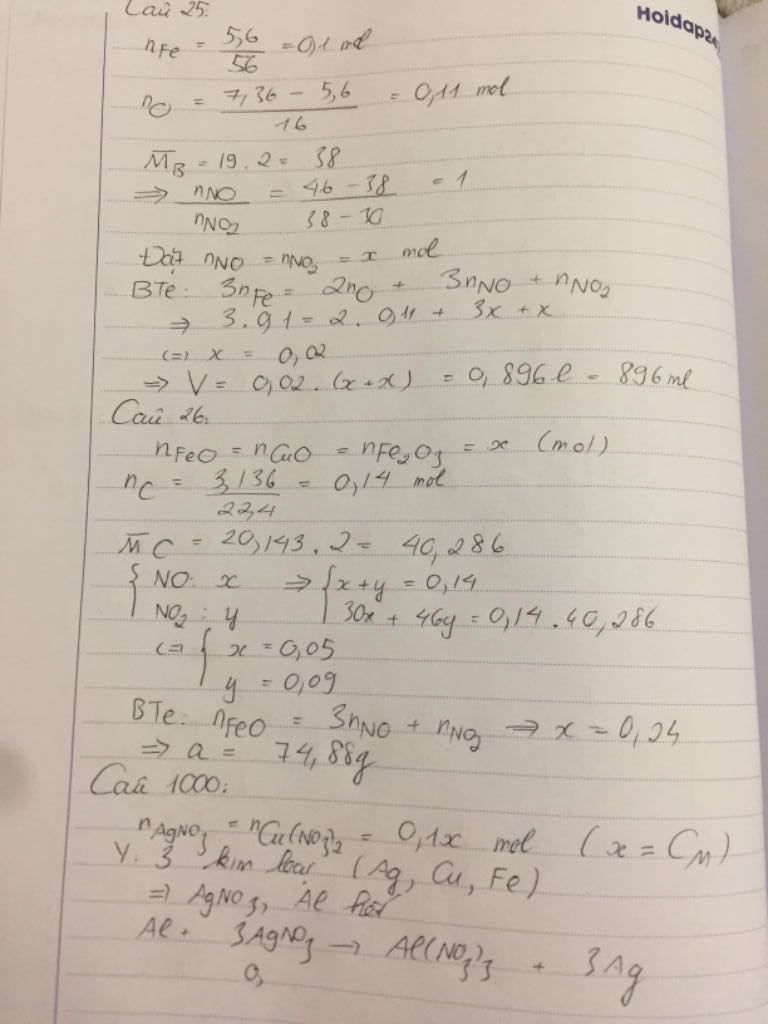 Câu 25:
Hoidap24
nFe = 5,6/56 = 0,1 mol
nO = 7,36 - 5,6 / 16 = 0,11 mol
M̅B = 19.2 = 38
=> nNO/nNO2 = 46 - 38 / 38 - 30 = 1
Đặt nNO = nNO2 = x mol
BTe: 3nFe = 2nO + 3nNO + nNO2
=> 3.0,1 = 2.0,11 + 3x + x
(=) x = 0,02
=> V = 0,02.(x+x) = 0,896l = 896ml
Câu 26:
nFeO = nCuO = nFe2O3 = x (mol)
nC = 3,136/22,4 = 0,14 mol
M̅C = 20,143.2 = 40,286
{ NO: x => { x + y = 0,14
NO2: y 30x + 46y = 0,14.40,286
(=) { x = 0,05
y = 0,09
BTe: nFeO = 3nNO + nNO2 => x = 0,24
=> a = 74,88g
Câu 1000:
nAgNO3 = nCu(NO3)2 = 0,1x mol (x = CM)
Y: 3 kim loại (Ag, Cu, Fe)
=> AgNO3, Al hết
Al + 3AgNO3 -> Al(NO3)3 + 3Ag
0,